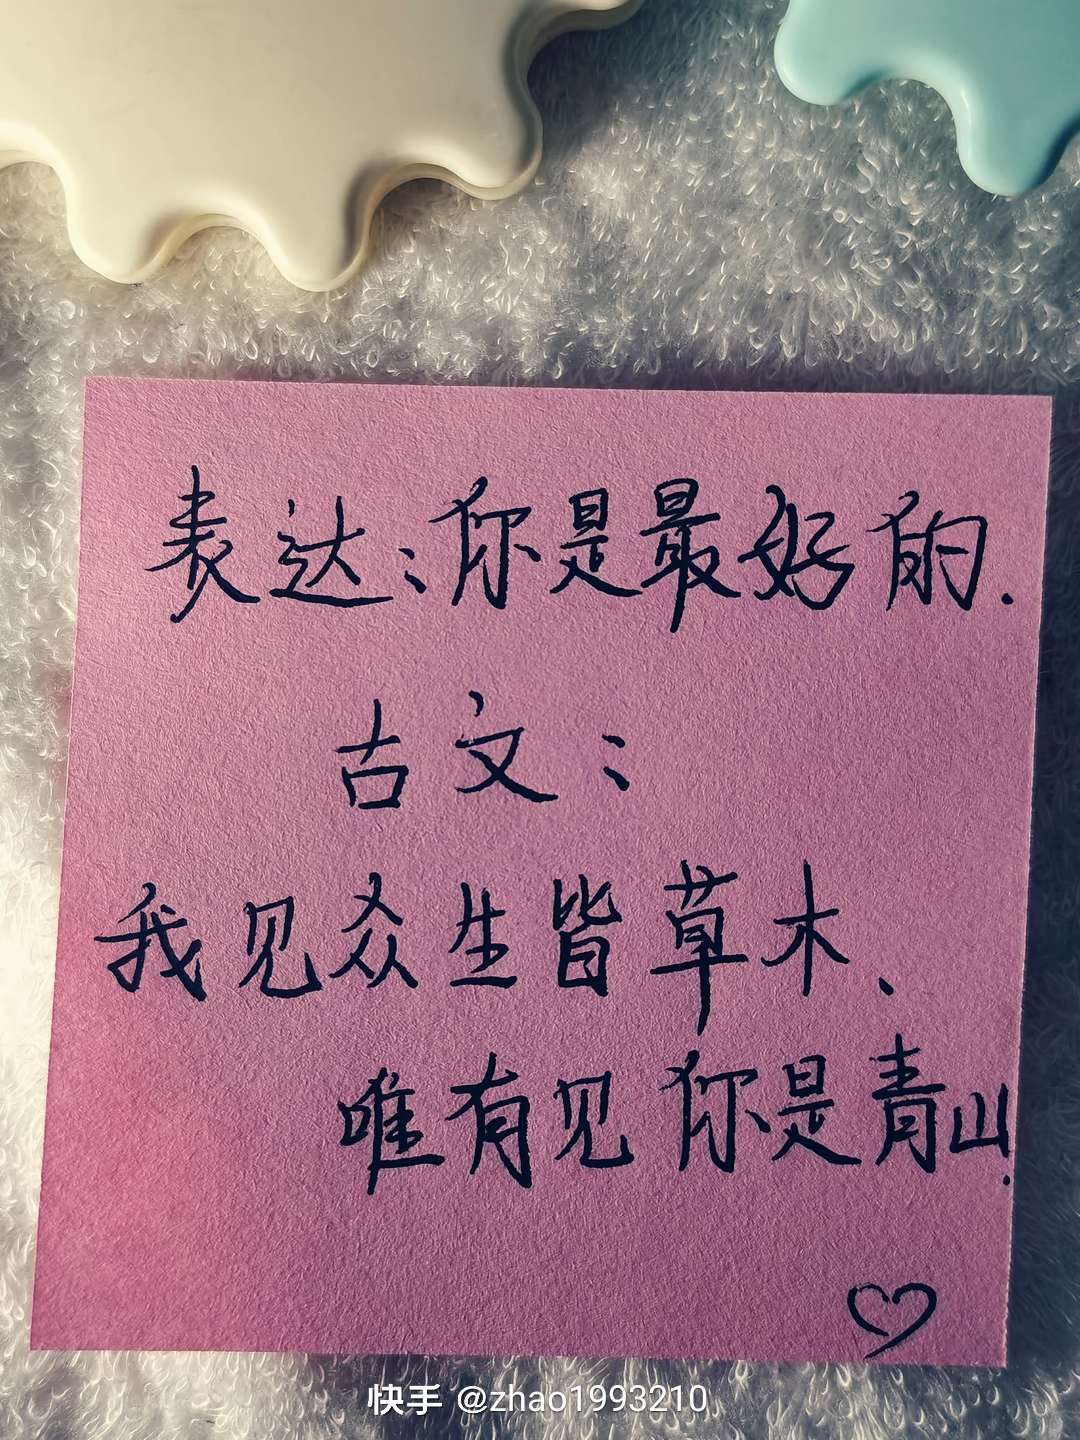 表达:你是最好的.
古文:
我见众生皆草木、
唯有见你是青山.
快手 @zhao1993210